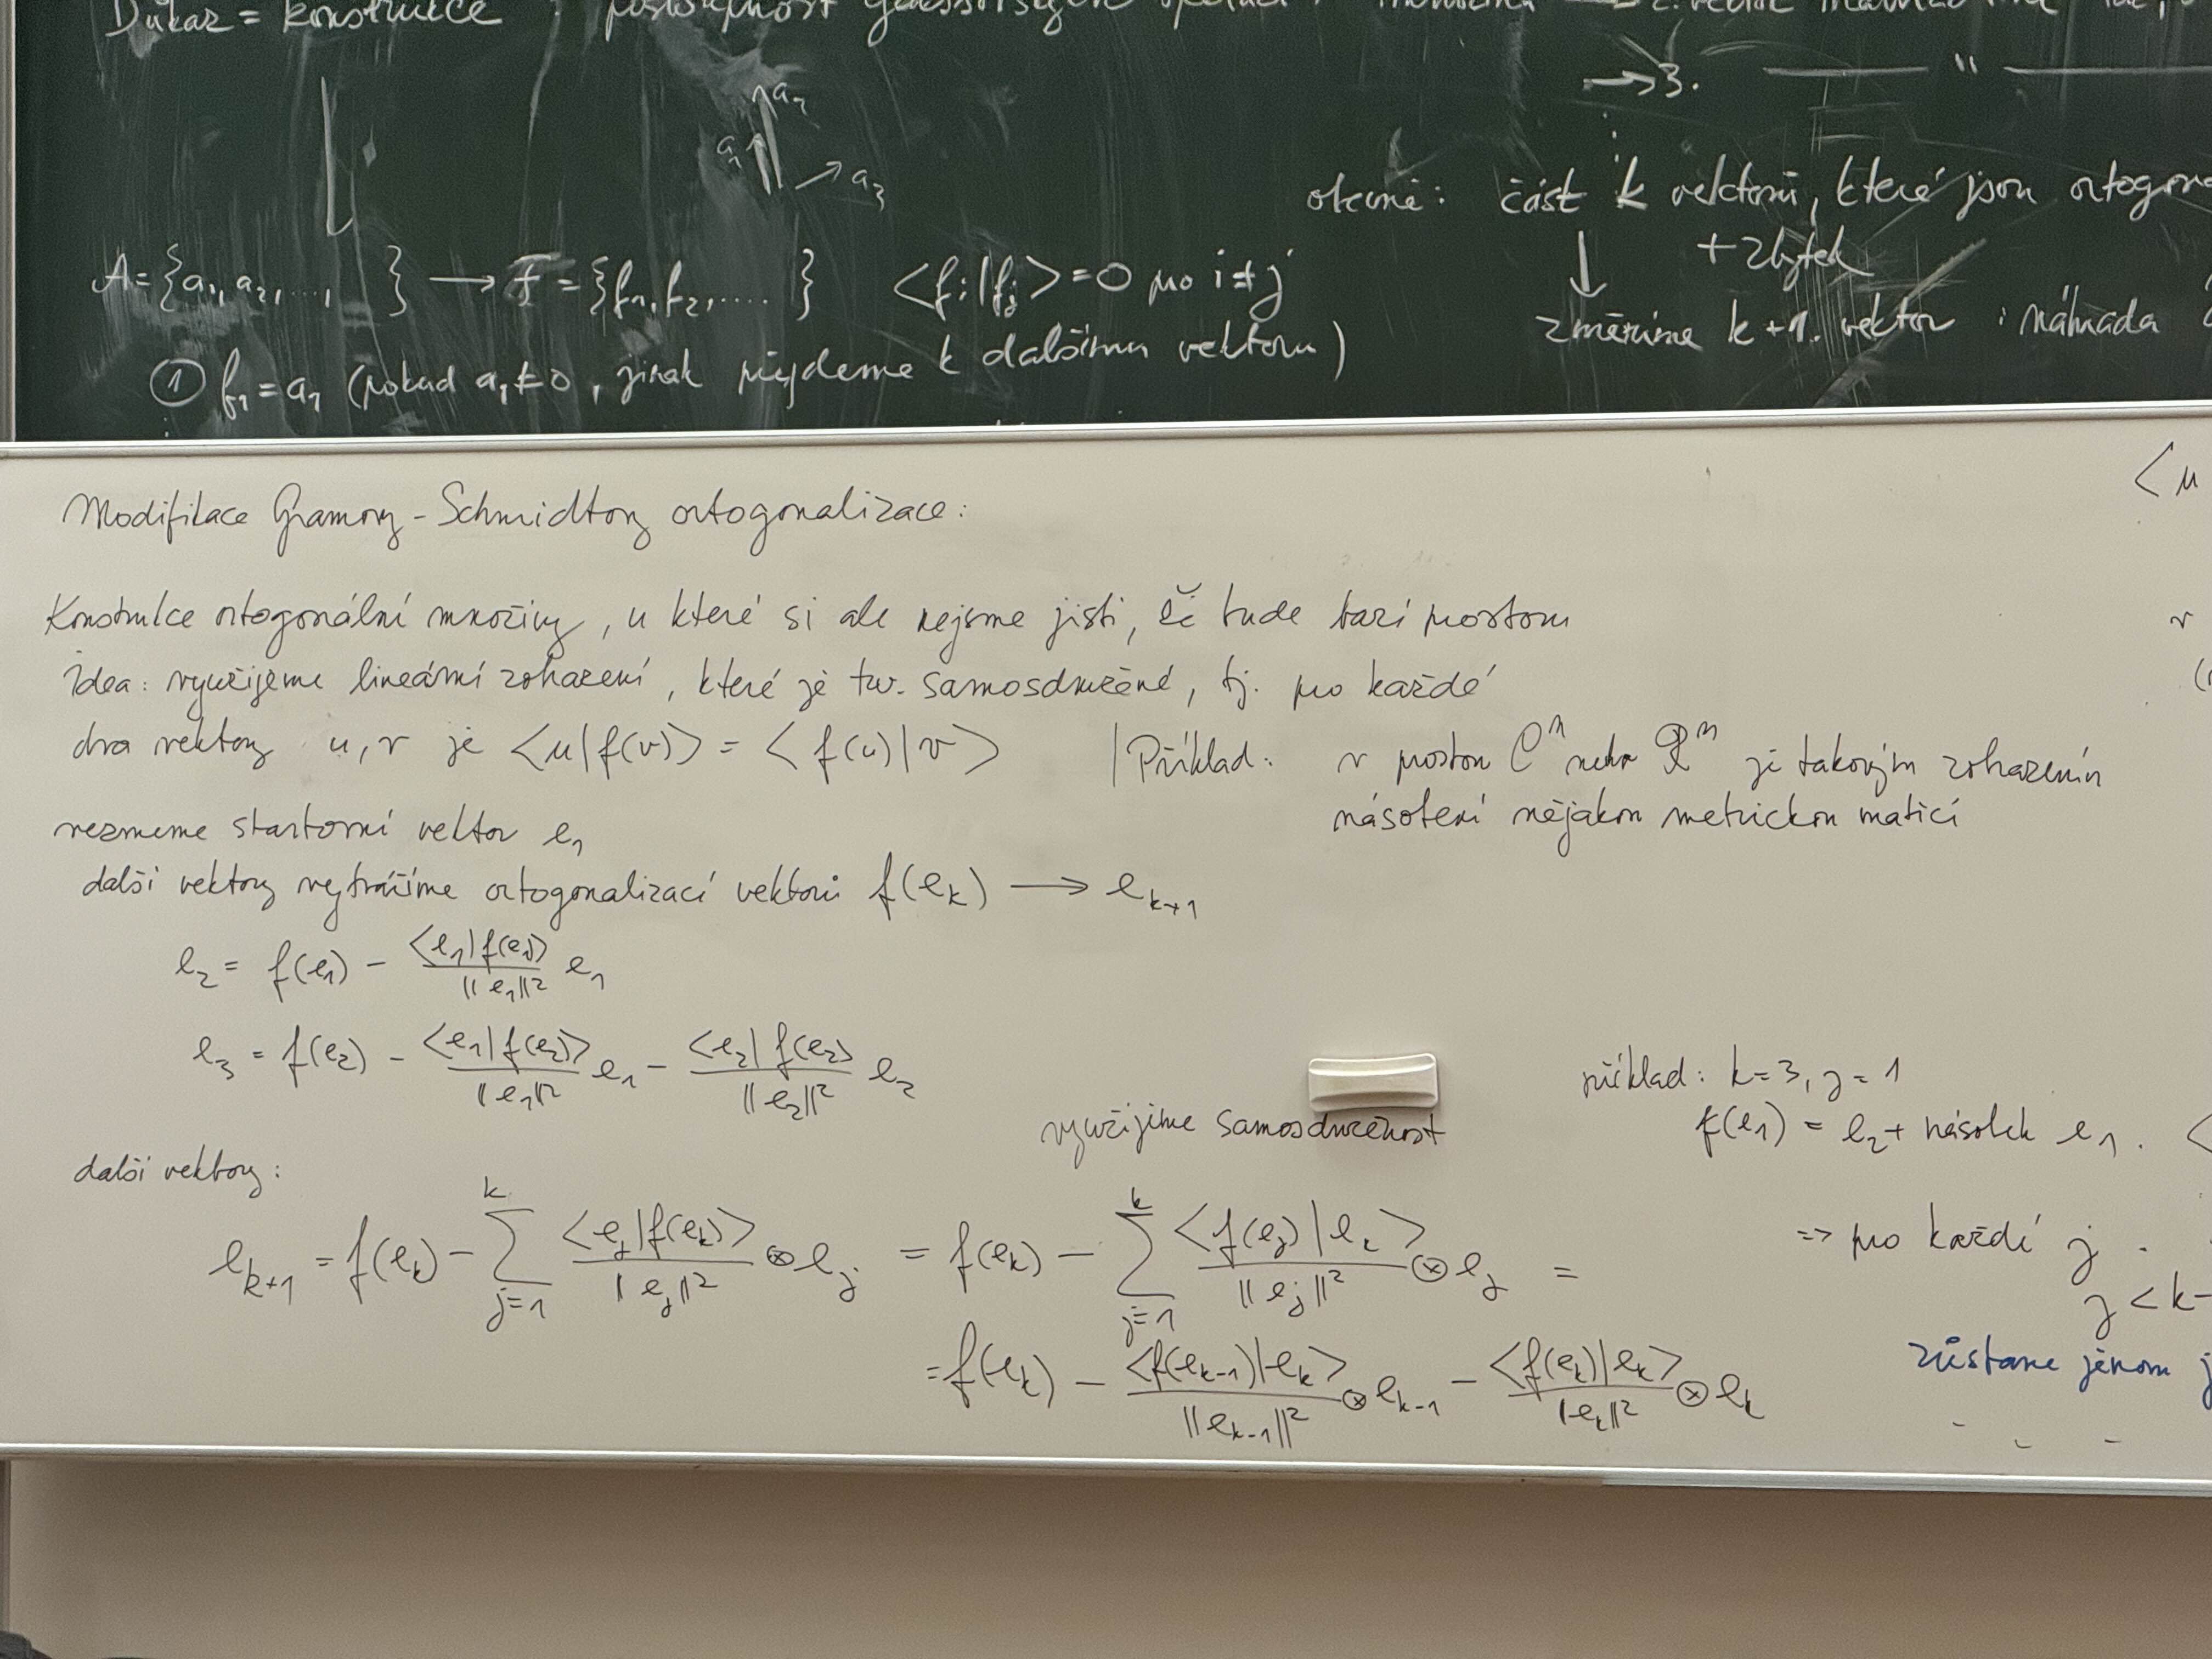 Důkaz = konstrukce : posloupnost
→ 3. — " —
a₂
a₁
a₃
obecně: část k vektorů, které jsou
+ zbytek
↓
změníme k+1. vektor : náhrada
A = {a₁, a₂, ..., } → F = {f₁, f₂, .... } <fᵢ|fⱼ> = 0 pro i ≠ j
① f₁ = a₁ (pokud a₁ ≠ 0, jinak přejdeme k dalšímu vektoru)
<u
Modifikace Gramovy-Schmidtovy ortogonalizace:
Konstrukce ortogonální množiny, u které si ale nejsme jisti, že bude bází prostoru
Idea: využijeme lineární zobrazení, které je tzv. samosdružené, tj. pro každé
dva vektory u, v je <u|f(v)> = <f(u)|v>
| Příklad: v prostoru Cⁿ nebo Rⁿ je takovým zobrazením
násobení nějakou metrickou maticí
vezmeme startovní vektor e₁
další vektory vytváříme ortogonalizací vektorů f(eₖ) → eₖ₊₁
e₂ = f(e₁) - <e₁|f(e₁)> / ||e₁||² e₁
e₃ = f(e₂) - <e₁|f(e₂)> / ||e₁||² e₁ - <e₂|f(e₂)> / ||e₂||² e₂
příklad: k=3, j=1
f(e₁) = e₂ + násobek e₁. <
využijeme samosdruženost
další vektory:
eₖ₊₁ = f(eₖ) - Σⱼ₌₁ᵏ <eⱼ|f(eₖ)> / ||eⱼ||² ⊗ eⱼ = f(eₖ) - Σⱼ₌₁ᵏ <f(eⱼ)|eₖ> / ||eⱼ||² ⊗ eⱼ =
= f(eₖ) - <f(eₖ₋₁)|eₖ> / ||eₖ₋₁||² ⊗ eₖ₋₁ - <f(eₖ)|eₖ> / ||eₖ||² ⊗ eₖ
=> pro každé j
j < k-
zůstane jenom j